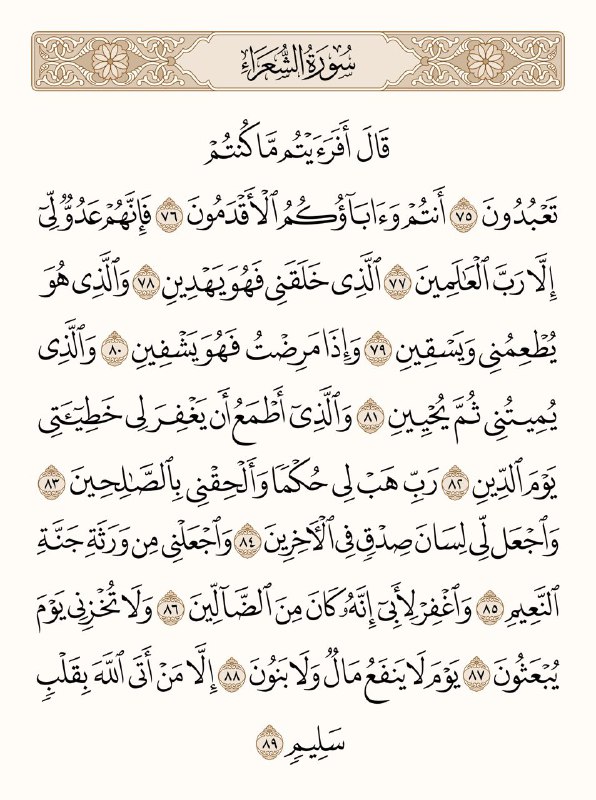 سُورَةُ الشُّعَرَاءِ
قَالَ أَفَرَءَيْتُم مَّا كُنتُمْ
تَعْبُدُونَ ٧٥ أَنتُمْ وَءَابَآؤُكُمُ ٱلْأَقْدَمُونَ ٧٦ فَإِنَّهُمْ عَدُوٌّ لِّىٓ
إِلَّا رَبَّ ٱلْعَٰلَمِينَ ٧٧ ٱلَّذِى خَلَقَنِى فَهُوَ يَهْدِينِ ٧٨ وَٱلَّذِى هُوَ
يُطْعِمُنِى وَيَسْقِينِ ٧٩ وَإِذَا مَرِضْتُ فَهُوَ يَشْفِينِ ٨٠ وَٱلَّذِى
يُمِيتُنِى ثُمَّ يُحْيِينِ ٨١ وَٱلَّذِىٓ أَطْمَعُ أَن يَغْفِرَ لِى خَطِيٓـَٔتِى
يَوْمَ ٱلدِّينِ ٨٢ رَبِّ هَبْ لِى حُكْمًا وَأَلْحِقْنِى بِٱلصَّٰلِحِينَ ٨٣
وَٱجْعَل لِّى لِسَانَ صِدْقٍ فِى ٱلْءَاخِرِينَ ٨٤ وَٱجْعَلْنِى مِن وَرَثَةِ جَنَّةِ
ٱلنَّعِيمِ ٨٥ وَٱغْفِرْ لِأَبِىٓ إِنَّهُۥ كَانَ مِنَ ٱلضَّآلِّينَ ٨٦ وَلَا تُخْزِنِى يَوْمَ
يُبْعَثُونَ ٨٧ يَوْمَ لَا يَنفَعُ مَالٌ وَلَا بَنُونَ ٨٨ إِلَّا مَنْ أَتَى ٱللَّهَ بِقَلْبٍ
سَلِيمٍ ٨٩